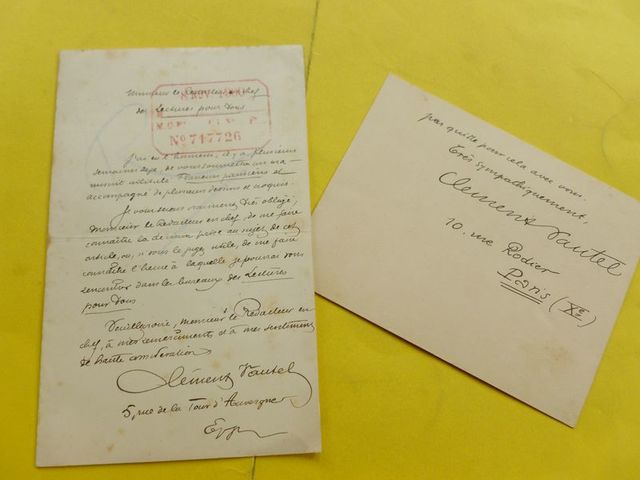 Monsieur le Rédacteur en chef
des Lectures pour Tous
No 717726
J'ai eu l'honneur, il y a plusieurs
semaines déjà, de vous soumettre un ma-
nuscrit intitulé parisiens et
accompagné de plusieurs dessins et croquis.
Je vous serais vraiment très obligé,
Monsieur le Rédacteur en chef, de me faire
connaître la décision prise au sujet de cet
article, ou, si vous le jugez utile, de me faire
connaître l'heure à laquelle je pourrai vous
rencontrer dans les bureaux des Lectures
pour Tous.
Veuillez croire, Monsieur le Rédacteur en
chef, à mes remerciements et à mes sentiments
de haute considération
Clément Vautel
5, rue de la Tour d'Auvergne
pas quitte pour cela avec vous.
Très sympathiquement,
Clément Vautel
10, rue Rodier
Paris (IXe)